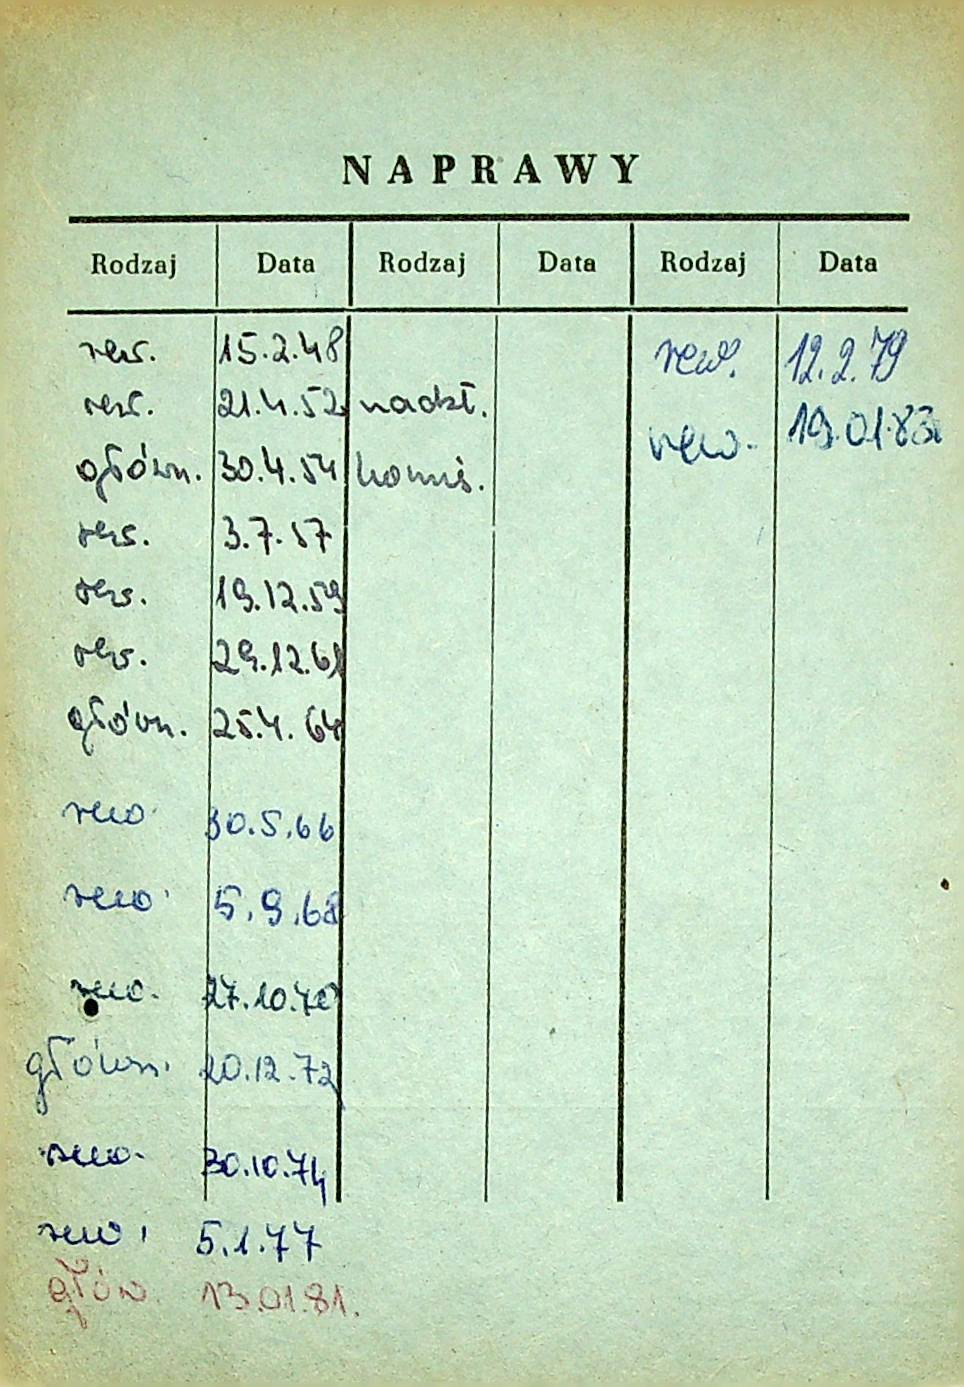 NAPRAWY
Rodzaj Data Rodzaj Data Rodzaj Data
rew. 15.2.48 rew. 12.2.79
rew. 21.4.52 nadzt. rew. 19.01.83
główn. 30.4.54 komis.
rew. 3.7.57
rew. 19.12.59
rew. 29.12.61
główn. 25.4.64
rew. 30.5.66
rew. 5.9.68
rew. 27.10.70
główn. 20.12.72
rew. 30.10.74
rew. 5.1.77
głów. 13.01.81.